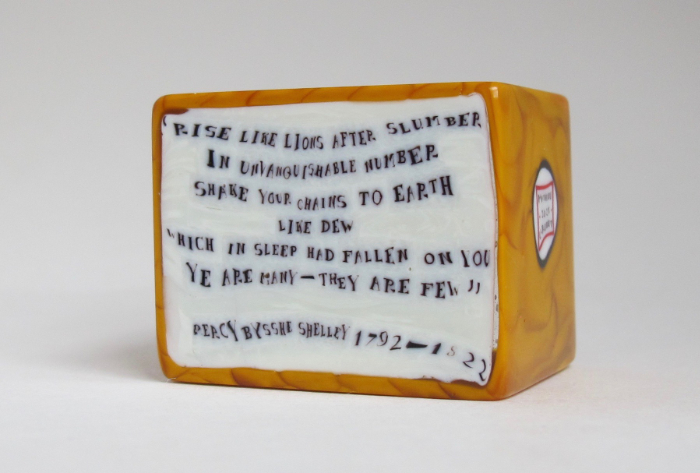 "RISE LIKE LIONS AFTER SLUMBER
IN UNVANQUISHABLE NUMBER
SHAKE YOUR CHAINS TO EARTH
LIKE DEW
WHICH IN SLEEP HAD FALLEN ON YOU
YE ARE MANY—THEY ARE FEW"
PERCY BYSSHE SHELLEY 1792—1822